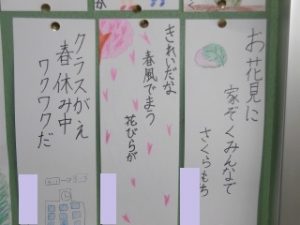 お花見に
家ぞくみんなで
さくらもち
きれいだな
春風でまう
花びらが
クラスがえ
春休み中
ワクワクだ